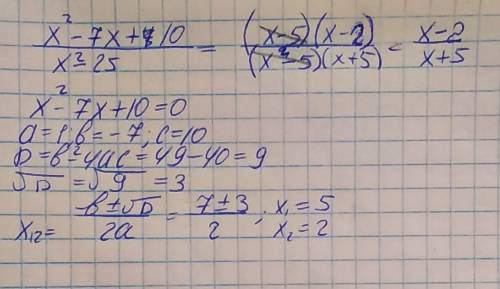 (x² - 7x + 10)/(x² - 25) = ((x-5)(x-2))/((x-5)(x+5)) = (x-2)/(x+5)
x² - 7x + 10 = 0
a = 1; b = -7; c = 10
D = b² - 4ac = 49 - 40 = 9
√D = √9 = 3
x₁₂ = (b ± √D)/(2a) = (7 ± 3)/2 ; x₁ = 5
x₂ = 2